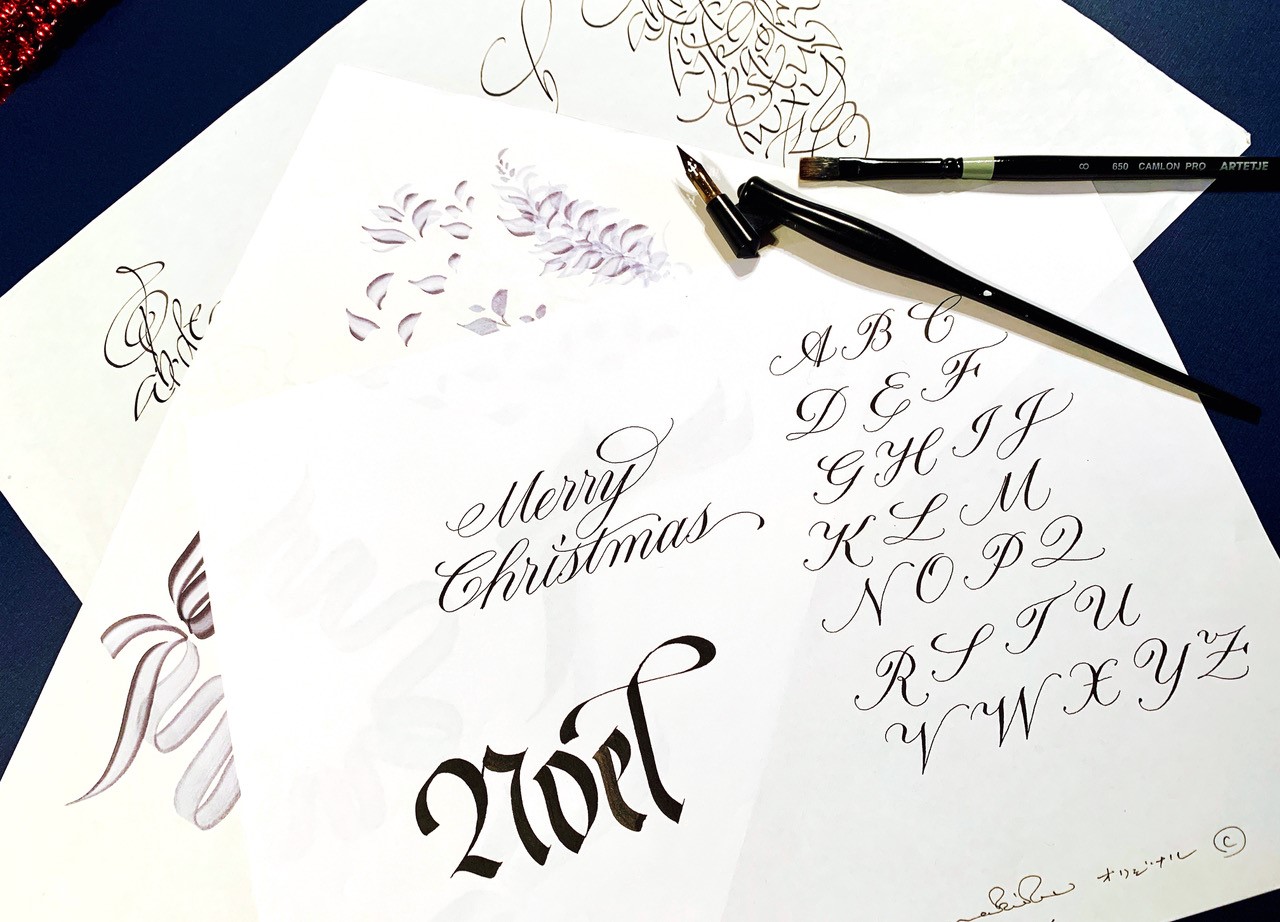 8 650 CAMLON PRO ARTETJE
A B C
D E F
G H I J
K L M
N O P Q
R S T U
V W X Y Z
Merry
Christmas
Noel
abcde
オリジナル ©